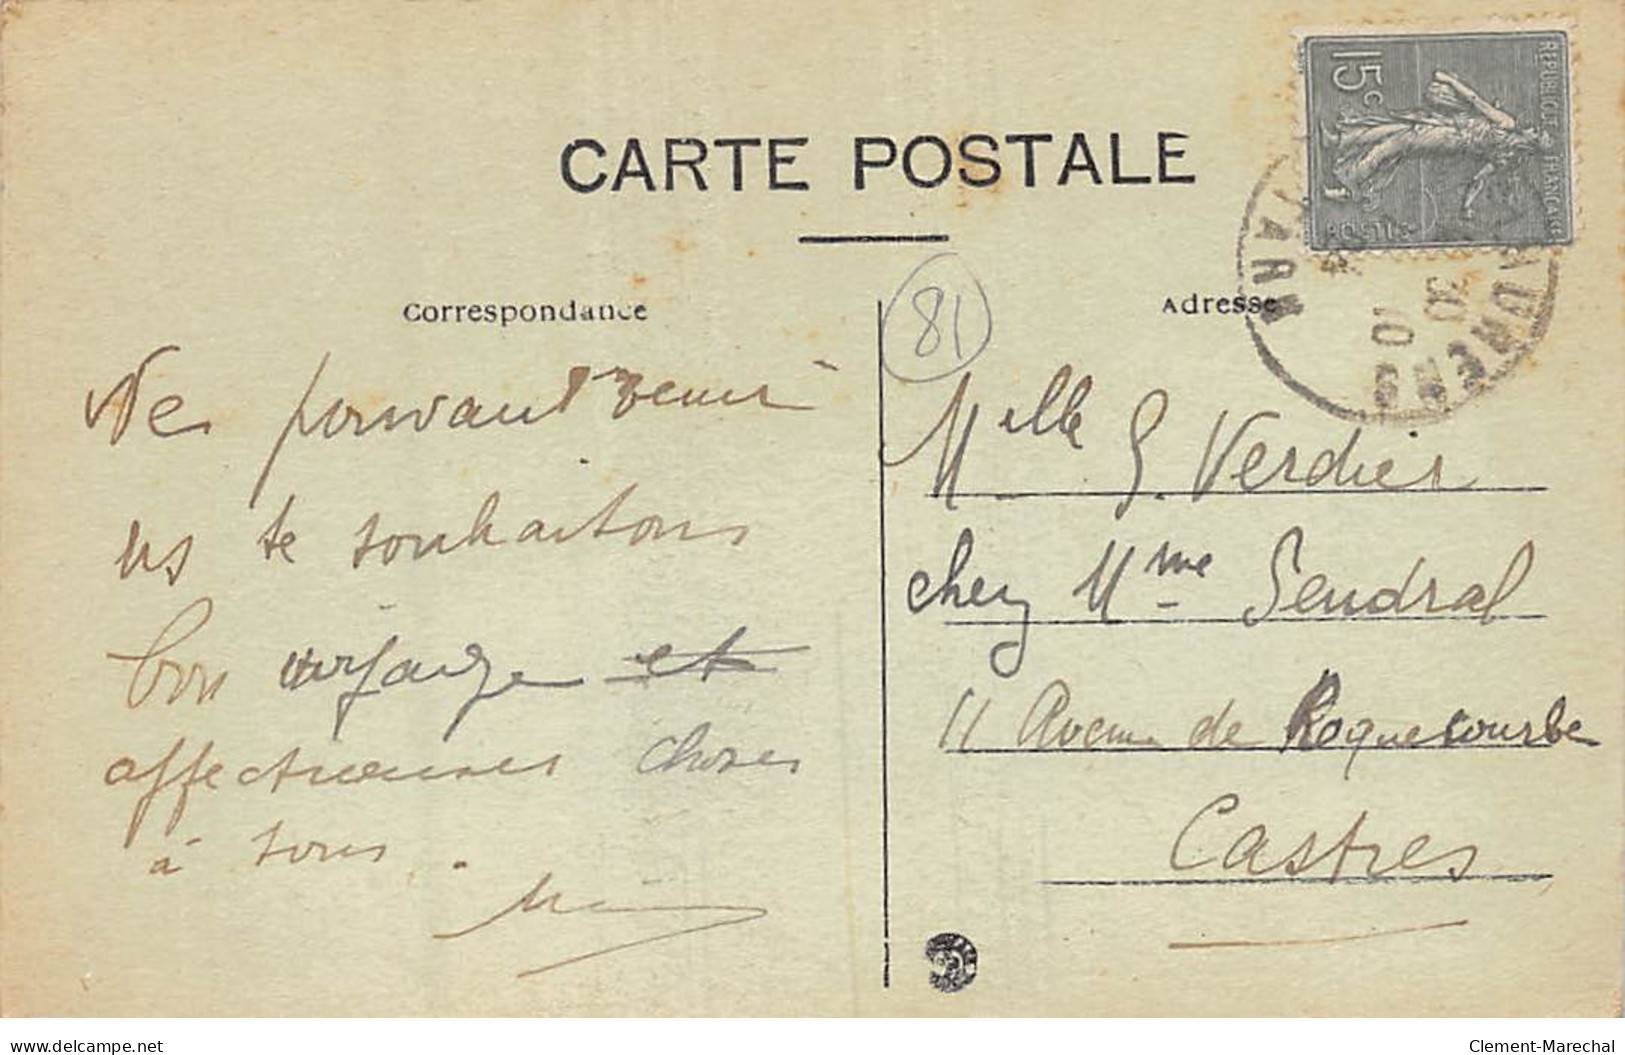 CARTE POSTALE
Correspondance
Adresse
81
15c
REPUBLIQUE FRANCAISE
POSTES
TARN
10
Ne pouvant venir
ns te souhaitons
bon voyage et
affectueuses choses
à tous.
Melle G. Verdier
chez Mme Sendral
11 Avenue de Roquecourbe
Castres
www.delcampe.net
Clement-Marechal